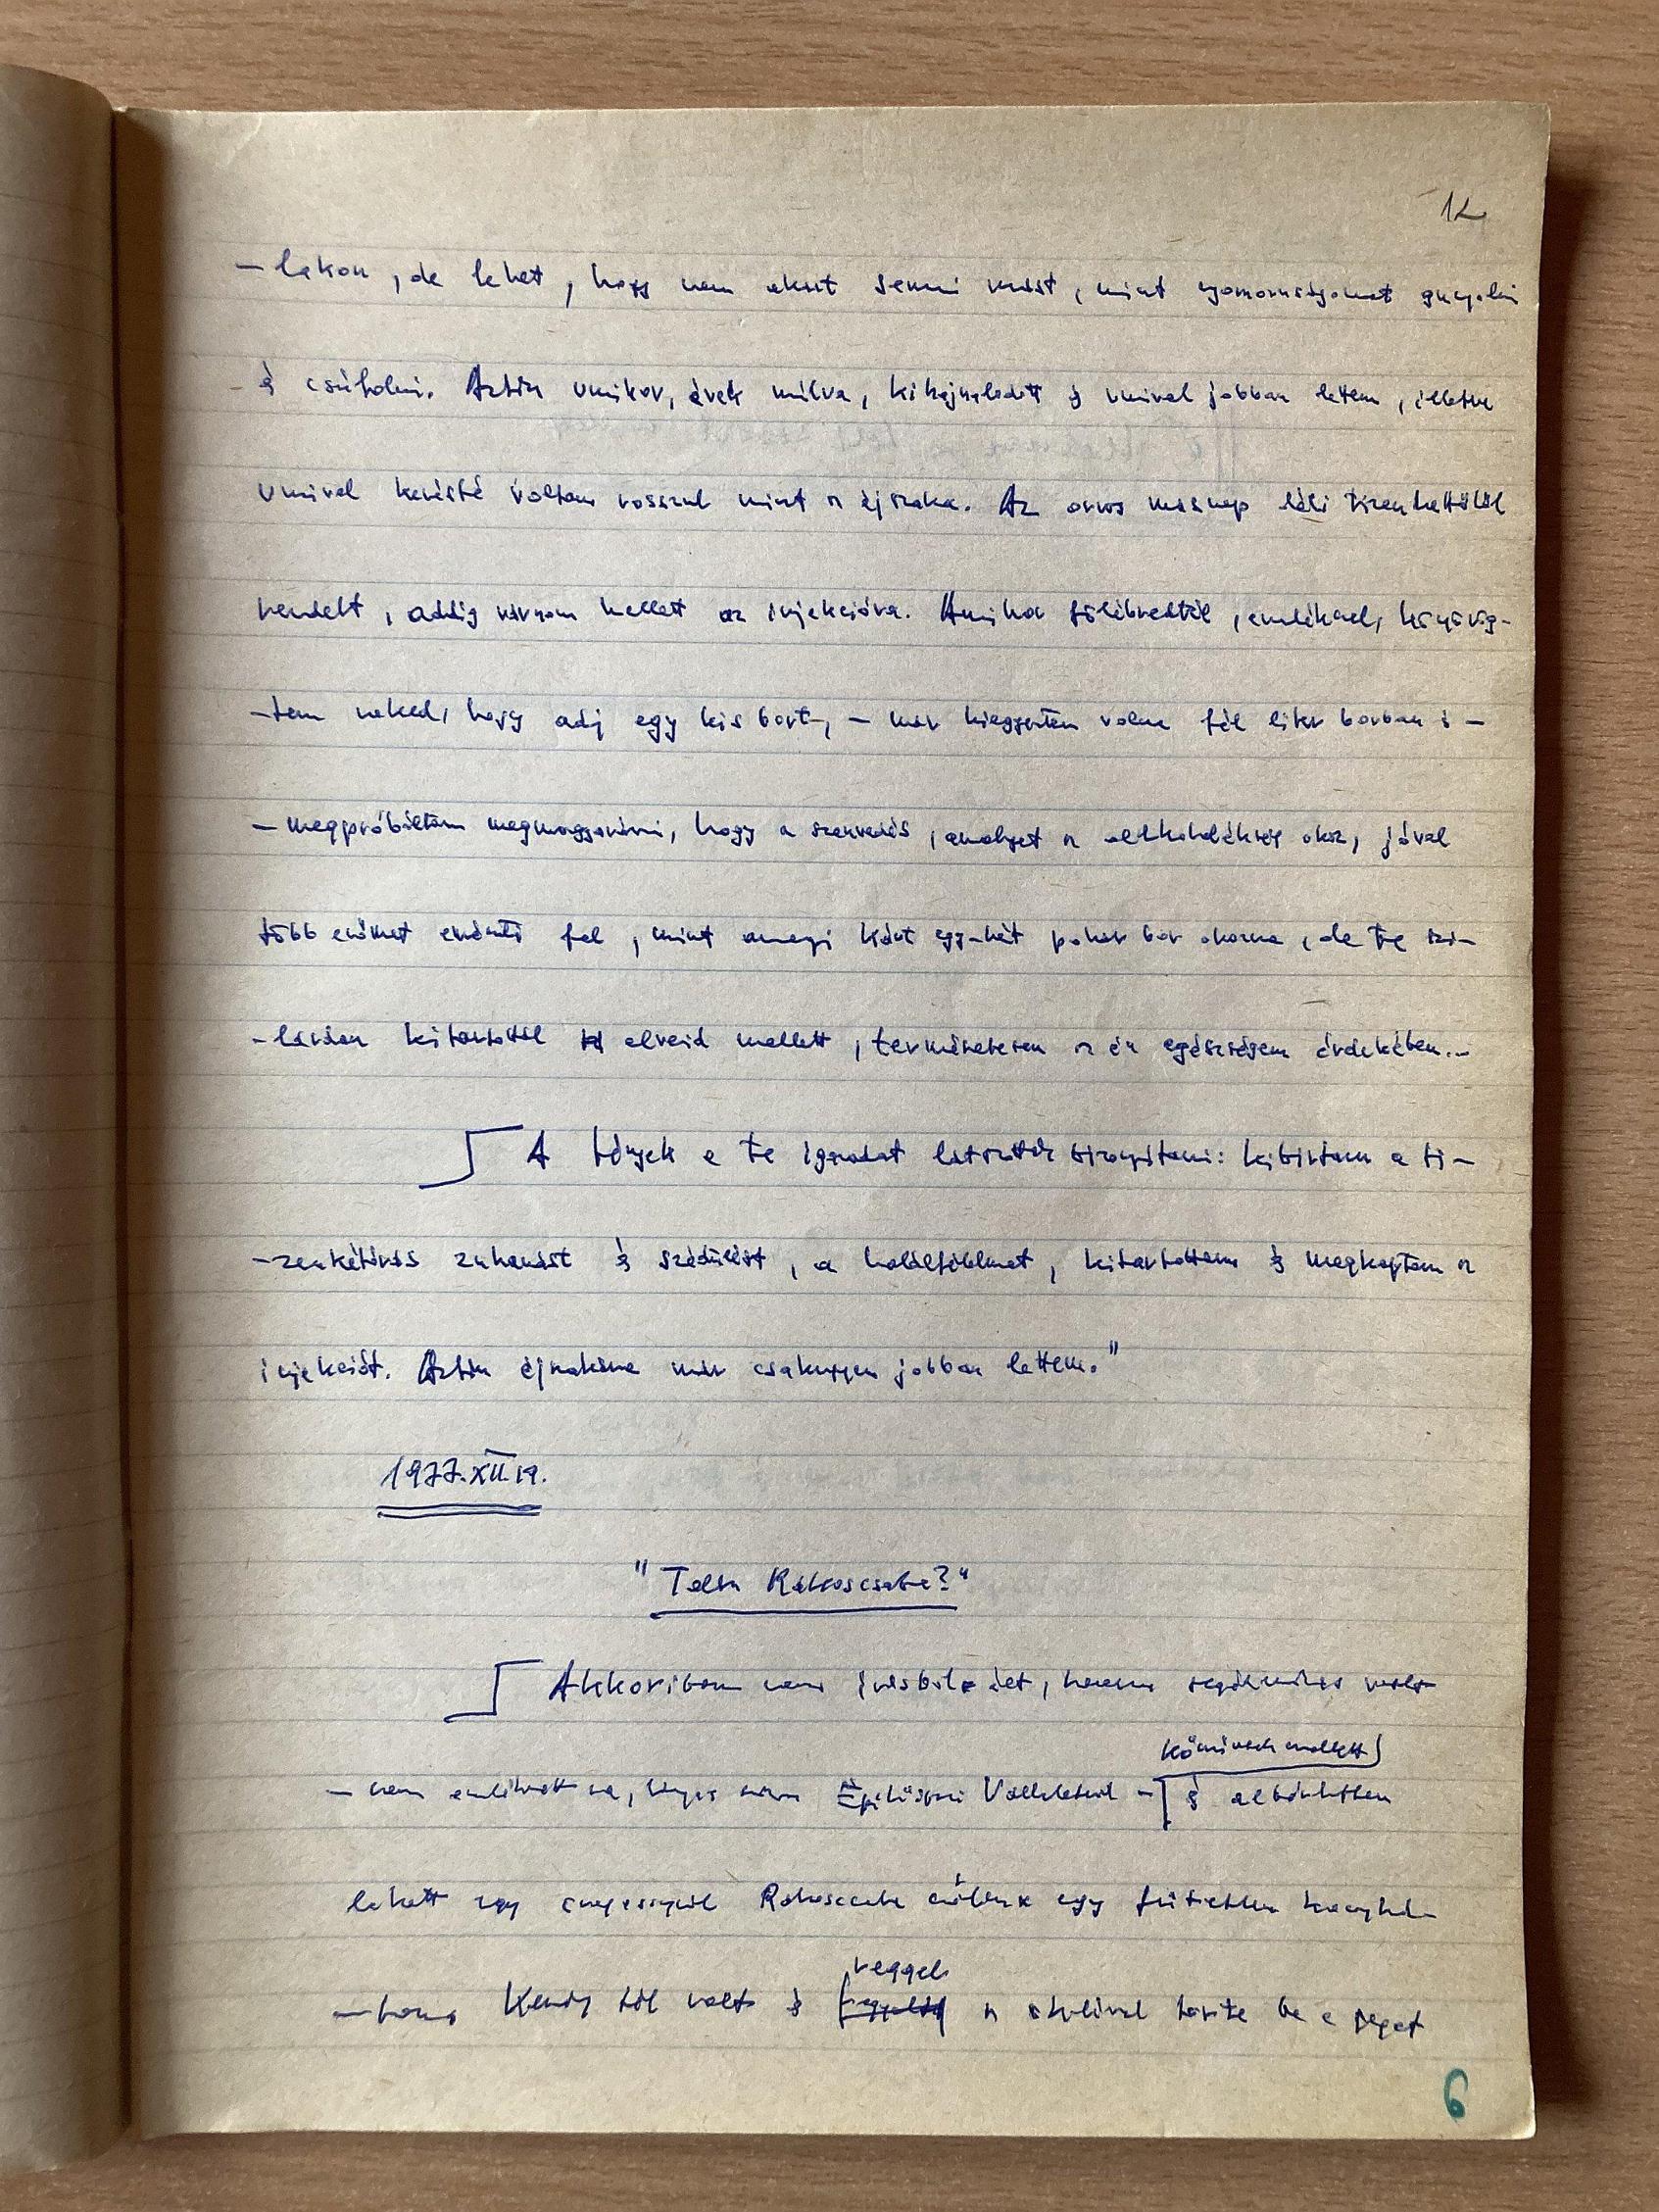 12
- lakon, de lehet, hogy nem akart semmi mást, mint nyomorúságomat gunyolni
és csúfolni. Aztán vmikor, évek múlva, kihajnalodott és vmivel jobban lettem, illetve
vmivel kevésbé voltam rosszul mint az éjszaka. Az orvos másnap déli tizenkettőtől
rendelt, addig várnom kellett az injekcióra. Amikor fölébredtél, emlékszel, könyörög-
-tem neked, hogy adj egy kis bort, - már kiegyeztem volna fél liter borban is -
- megpróbáltam megmagyarázni, hogy a szenvedés, amelyet az alkoholéhség okoz, jóval
több erőmet emészti fel, mint amenyi kárt egy-két pohár bor okozna, de te szi-
-lárdan kitartottál elveid mellett, természetesen az én egészségem érdekében...
A tények a te igazadat látszottak bizonyítani: kibírtam a ti-
-zenkétórás zuhanást és szédülést, a halálfélelmet, kitartottam és megkaptam az
injekciót. Aztán éjszakára már csakugyan jobban lettem."
1977.XII.19.
" Rákoscsaba?"
Akkoriban nem írásból élt, hanem segédmunkás volt
- nem emlékszem, hogy Építőipari Vállalatnál -
kőművesek mellett
és albérletben
lakott egy Rákoscsaba egy fűtetlen
volt és reggel az öklével törte be a jeget
6